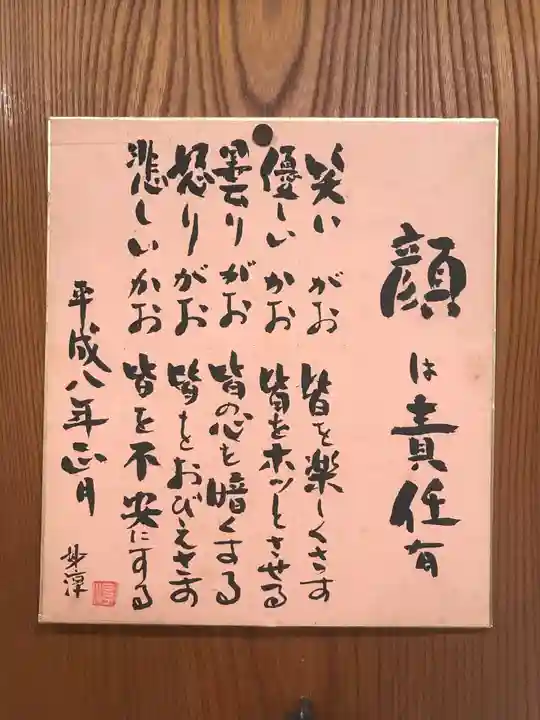 顔は責任有
笑いがお 皆を楽しくさす
優しいかお 皆をホッとさせる
曇りがお 皆の心を暗くする
怒りがお 皆をおびえさす
悲しいかお 皆を不安にする
平成八年正月